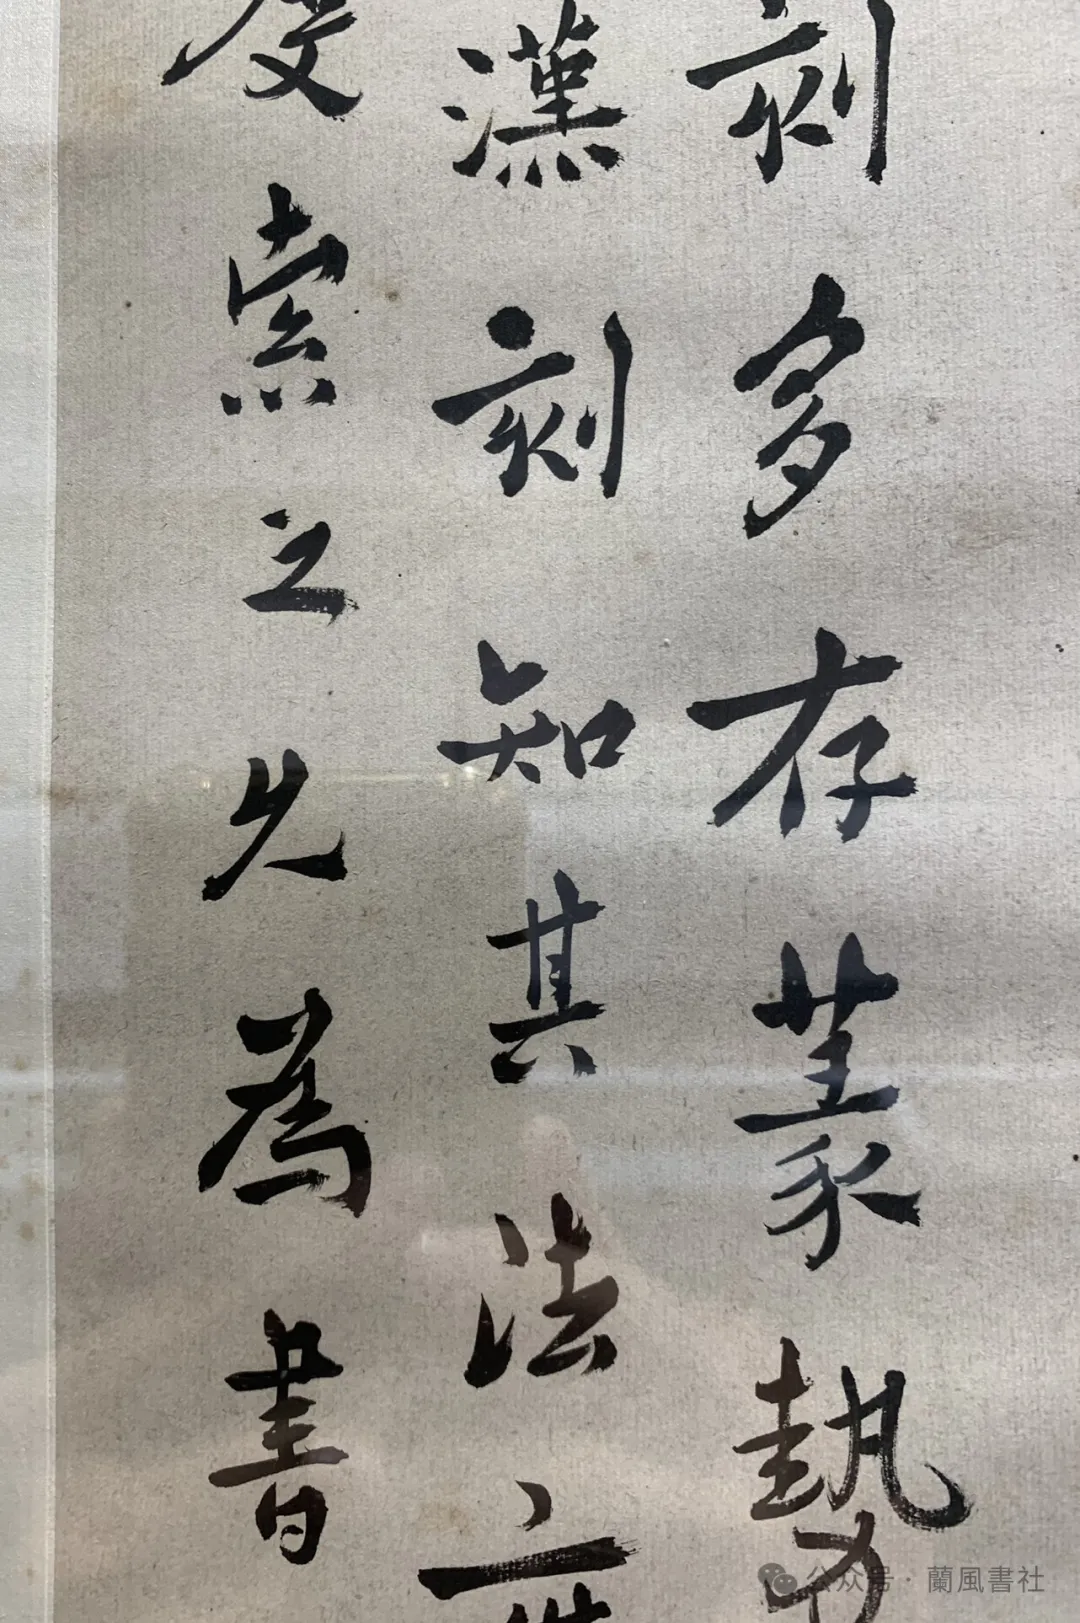 刻多存篆勢
漢刻知其法
索之先為書
公众号 · 蘭風書社